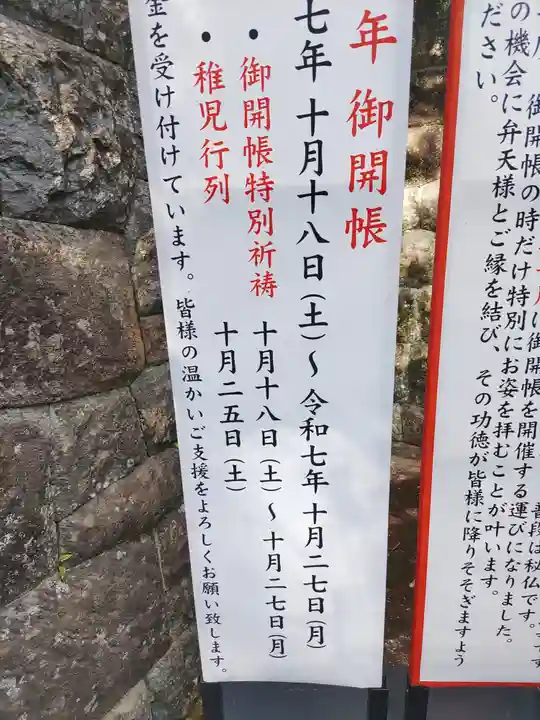 年 御開帳
七年 十月十八日(土)〜 令和七年 十月二七日(月)
・御開帳特別祈祷 十月十八日(土)〜十月二七日(月)
・稚児行列 十月二五日(土)
金を受け付けています。皆様の温かいご支援をよろしくお願い致します。
普段は秘仏です。
に御開帳を開催する運びになりました。
御開帳の時だけ特別にお姿を拝むことが叶います。
の機会に弁天様とご縁を結び、その功徳が皆様に降りそそぎますよう
ださい。